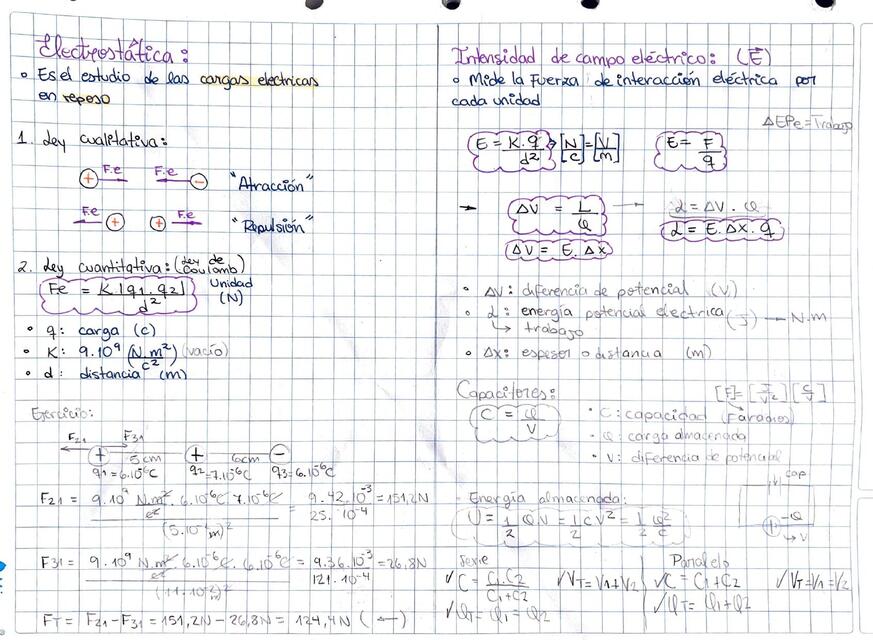 Electrostática:
• Es el estudio de las cargas electricas
en reposo
1. Ley cualitativa:
+ F.e F.e - "Atracción"
F.e + + F.e "Repulsión"
2. Ley cuantitativa: (Ley de Coulomb)
Fe = K.|q1.q2| / d² Unidad (N)
• q: carga (c)
• K: 9.10⁹ (N.m²/c²) (vacío)
• d: distancia (m)
Ejercicio:
F21 F31
+ 5cm + 6cm -
q1=6.10⁻⁶C q2=7.10⁻⁶C q3=6.10⁻⁶C
F21 = 9.10⁹ N.m²/c² . 6.10⁻⁶C 7.10⁻⁶C / (5.10⁻²m)² = 9.42.10⁻³ / 25.10⁻⁴ = 151,2N
F31 = 9.10⁹ N.m²/c² . 6.10⁻⁶C. 6.10⁻⁶C / (11.10⁻²m)² = 9.36.10⁻³ / 121.10⁻⁴ = 26,8N
FT = F21 - F31 = 151,2N - 26,8N = 124,4N (←)
Intensidad de campo eléctrico: (E)
• Mide la Fuerza de interacción eléctrica por
cada unidad
ΔEPe = Trabajo
E = K.q / d² → [N/C] = [V/m] E = F/q
→ ΔV = L/Q → L = ΔV . Q
ΔV = E. Δx L = E. Δx. q
• ΔV: diferencia de potencial (V)
• L: energía potencial electrica (J) — N.m
↳ trabajo
• Δx: espesor o distancia (m)
Capacitores: [F]= [J/V²] [C/V]
C = Q/V • C: capacidad (Faradios)
• Q: carga almacenada
• V: diferencia de potencial
- Energía almacenada: cap
U = 1/2 Q.V = 1/2 CV² = 1/2 Q²/C -Q
+ ↳ V
Serie
✓ C = C1.C2 / C1+C2 ✓ VT = V1+V2
✓ QT = Q1 = Q2
Paralelo
✓ C = C1+C2 ✓ VT = V1 = V2
✓ QT = Q1+Q2